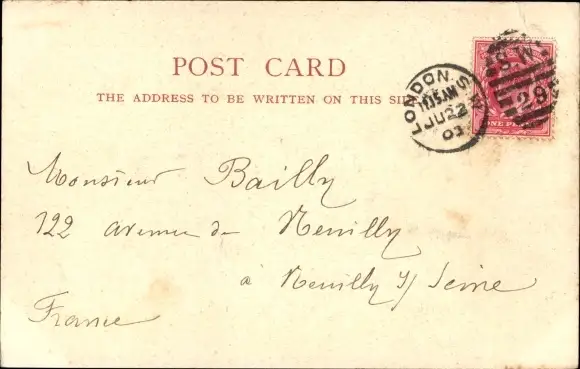 POST CARD
THE ADDRESS TO BE WRITTEN ON THIS SIDE
LONDON. S.W
11.15AM
JU 22
03
S.W.
28
ONE PENNY
Monsieur Bailly
122 avenue de Neuilly
à Neuilly s/ Seine
France